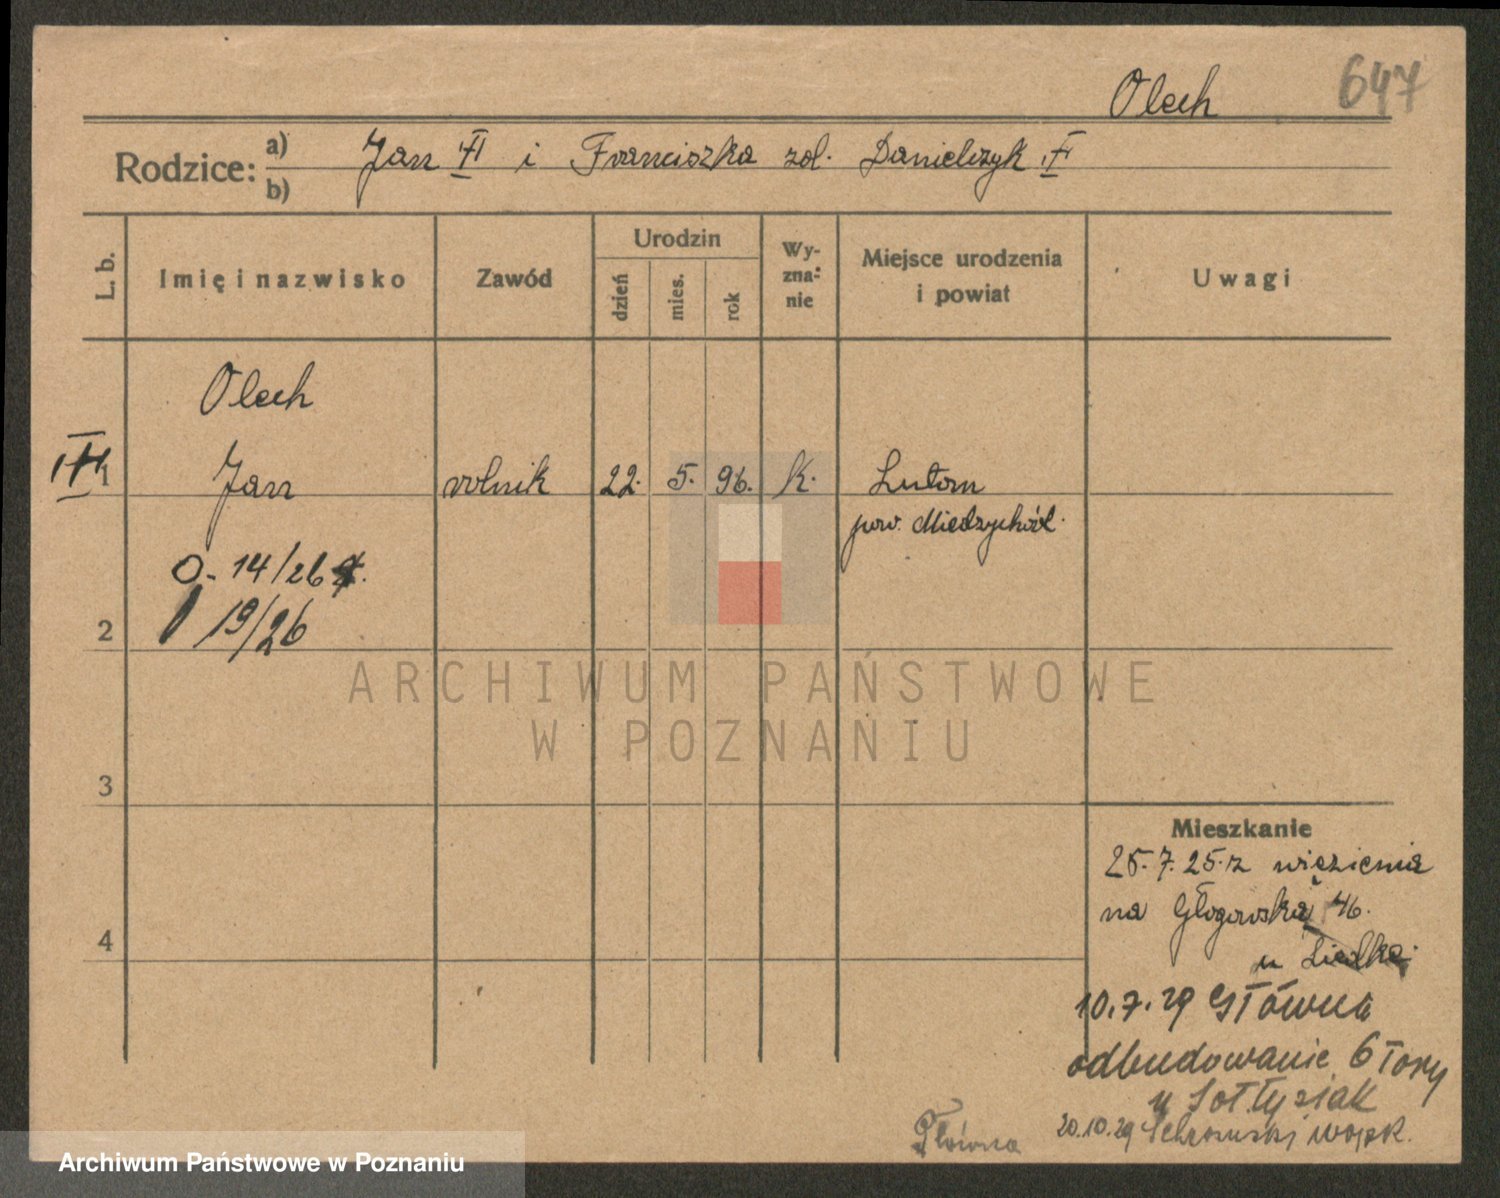 647
Olech
Rodzice:
a) Jan i Franciszka zd. Danielczyk
b)
L. b.
Imię i nazwisko
Zawód
Urodzin
dzień
mies.
rok
Wy-
zna-
nie
Miejsce urodzenia
i powiat
Uwagi
Olech
1 Jan rolnik 22. 5. 96. k. Lutom
pow. Międzychód.
O. 14/26
19/26
2
ARCHIWUM PAŃSTWOWE
W POZNANIU
3
Mieszkanie
25.7.25. z więzienia
na Głogowska 46.
u
4
10.7.29 Główna
odbudowanie 6
u Sołtysiak
20.10.29
Główna
Archiwum Państwowe w Poznaniu